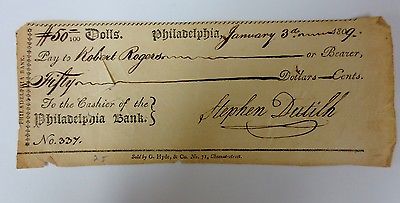 $50 00/100 Dolls. Philadelphia, January 3d 1809.
Pay to Robert Rogers or Bearer,
Fifty Dollars Cents.
To the Cashier of the
Philadelphia Bank.
Stephen Dutilh
No. 337.
25
Sold by G. Hyde, & Co. No. 71, Chesnut-street.
PHILADELPHIA BANK.